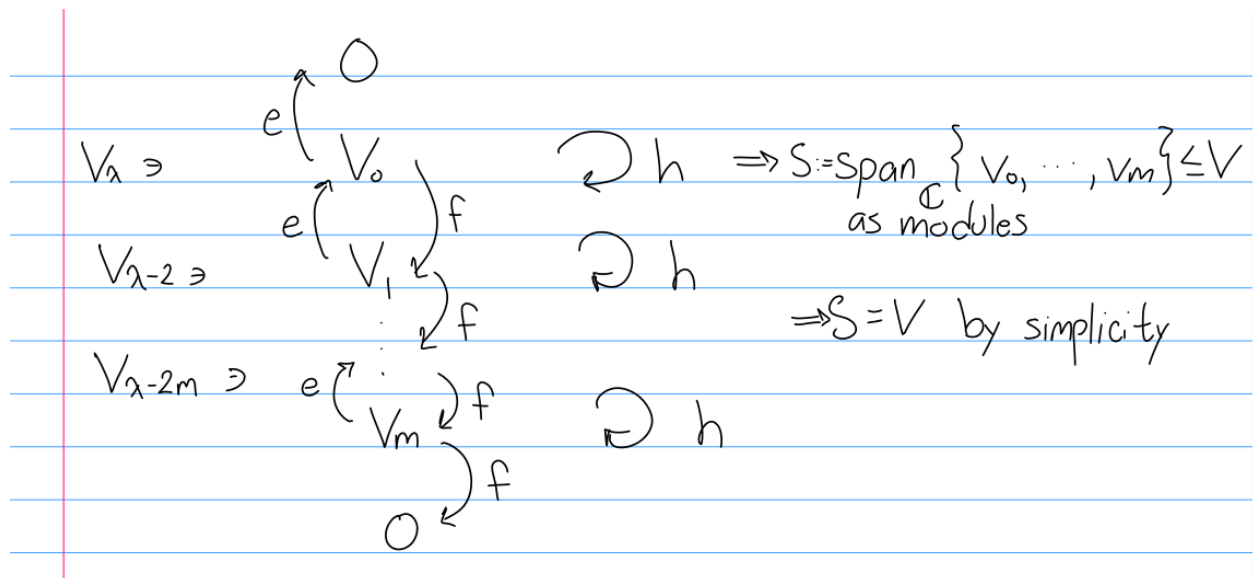 O
e
V_λ ∋ V_0 h ⇒ S:=span_ℂ {V_0, ⋯, V_m} ≤ V
e f as modules
V_{λ-2} ∋ V_1 h
f ⇒ S=V by simplicity
⋮
V_{λ-2m} ∋ e f
V_m h
f
O